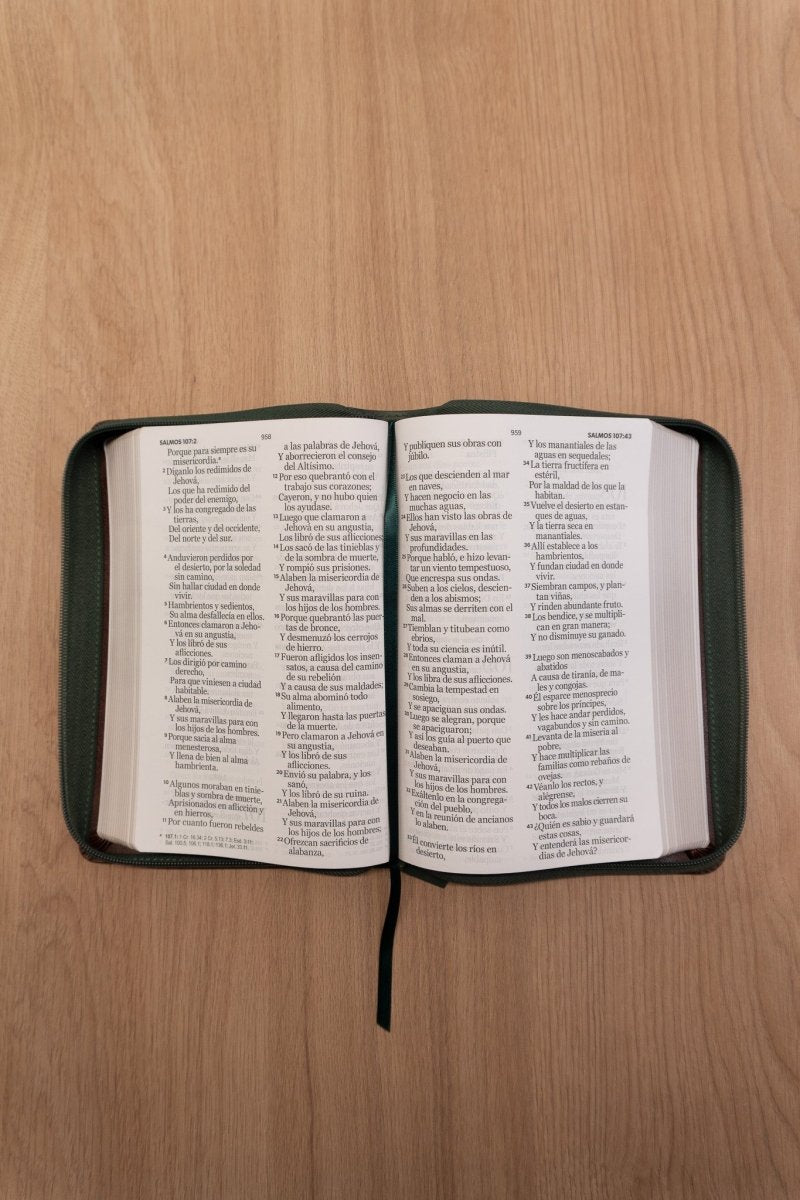 SALMOS 107:2
958
Porque para siempre es su
misericordia.*
2 Díganlo los redimidos de
Jehová,
Los que ha redimido del
poder del enemigo,
3 Y los ha congregado de las
tierras,
Del oriente y del occidente,
Del norte y del sur.
4 Anduvieron perdidos por
el desierto, por la soledad
sin camino,
Sin hallar ciudad en donde
vivir.
5 Hambrientos y sedientos,
Su alma desfallecía en ellos.
6 Entonces clamaron a Jeho-
vá en su angustia,
Y los libró de sus
aflicciones.
7 Los dirigió por camino
derecho,
Para que viniesen a ciudad
habitable.
8 Alaben la misericordia de
Jehová,
Y sus maravillas para con
los hijos de los hombres.
9 Porque sacia al alma
menesterosa,
Y llena de bien al alma
hambrienta.
10 Algunos moraban en tinie-
blas y sombra de muerte,
Aprisionados en aflicción y
en hierros,
11 Por cuanto fueron rebeldes
* 107.1: 1 Cr. 16:34; 2 Cr. 5.13; 7.3; Esd. 3:11;
Sal. 100.5; 106.1; 118.1; 136.1; Jer. 33.11.
a las palabras de Jehová,
Y aborrecieron el consejo
del Altísimo.
12 Por eso quebrantó con el
trabajo sus corazones;
Cayeron, y no hubo quien
los ayudase.
13 Luego que clamaron a
Jehová en su angustia,
Los libró de sus aflicciones;
14 Los sacó de las tinieblas y
de la sombra de muerte,
Y rompió sus prisiones.
15 Alaben la misericordia de
Jehová,
Y sus maravillas para con
los hijos de los hombres.
16 Porque quebrantó las puer-
tas de bronce,
Y desmenuzó los cerrojos
de hierro.
17 Fueron afligidos los insen-
satos, a causa del camino
de su rebelión
Y a causa de sus maldades;
18 Su alma abominó todo
alimento,
Y llegaron hasta las puertas
de la muerte.
19 Pero clamaron a Jehová en
su angustia,
Y los libró de sus
aflicciones.
20 Envió su palabra, y los
sanó,
Y los libró de su ruina.
21 Alaben la misericordia de
Jehová,
Y sus maravillas para con
los hijos de los hombres;
22 Ofrezcan sacrificios de
alabanza,
959
SALMOS 107:43
Y publiquen sus obras con
júbilo.
23 Los que descienden al mar
en naves,
Y hacen negocio en las
muchas aguas,
24 Ellos han visto las obras de
Jehová,
Y sus maravillas en las
profundidades.
25 Porque habló, e hizo levan-
tar un viento tempestuoso,
Que encrespa sus ondas.
26 Suben a los cielos, descien-
den a los abismos;
Sus almas se derriten con el
mal.
27 Tiemblan y titubean como
ebrios,
Y toda su ciencia es inútil.
28 Entonces claman a Jehová
en su angustia,
Y los libra de sus aflicciones.
29 Cambia la tempestad en
sosiego,
Y se apaciguan sus ondas.
30 Luego se alegran, porque
se apaciguaron;
Y así los guía al puerto que
deseaban.
31 Alaben la misericordia de
Jehová,
Y sus maravillas para con
los hijos de los hombres.
32 Exáltenlo en la congrega-
ción del pueblo,
Y en la reunión de ancianos
lo alaben.
33 Él convierte los ríos en
desierto,
Y los manantiales de las
aguas en sequedales;
34 La tierra fructífera en
estéril,
Por la maldad de los que la
habitan.
35 Vuelve el desierto en estan-
ques de aguas,
Y la tierra seca en
manantiales.
36 Allí establece a los
hambrientos,
Y fundan ciudad en donde
vivir.
37 Siembran campos, y plan-
tan viñas,
Y rinden abundante fruto.
38 Los bendice, y se multipli-
can en gran manera;
Y no disminuye su ganado.
39 Luego son menoscabados y
abatidos
A causa de tiranía, de ma-
les y congojas.
40 Él esparce menosprecio
sobre los príncipes,
Y les hace andar perdidos,
vagabundos y sin camino.
41 Levanta de la miseria al
pobre,
Y hace multiplicar las
familias como rebaños de
ovejas.
42 Véanlo los rectos, y
alégrense,
Y todos los malos cierren su
boca.
43 ¿Quién es sabio y guardará
estas cosas,
Y entenderá las misericor-
dias de Jehová?